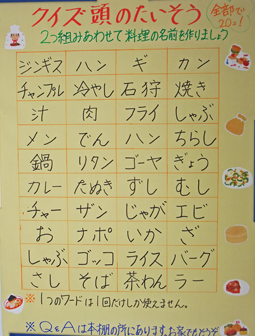 クイズ頭のたいそう
全部で20コ!
2つ組みあわせて料理の名前を作りましょう
ジンギス ハン ギ カン
チャンプル 冷やし 石狩 焼き
汁 肉 フライ しゃぶ
メン でん ハン ちらし
鍋 リタン ゴーヤ ぎょう
カレー たぬき ずし むし
チャー ザン じゃが エビ
お ナポ いか ざ
しゃぶ ゴッコ ライス バーグ
さし そば 茶わん ラー
※1つのワードは1回だけしか使えません。
※Q&Aは本棚の所にあります。お茶でもどうぞ